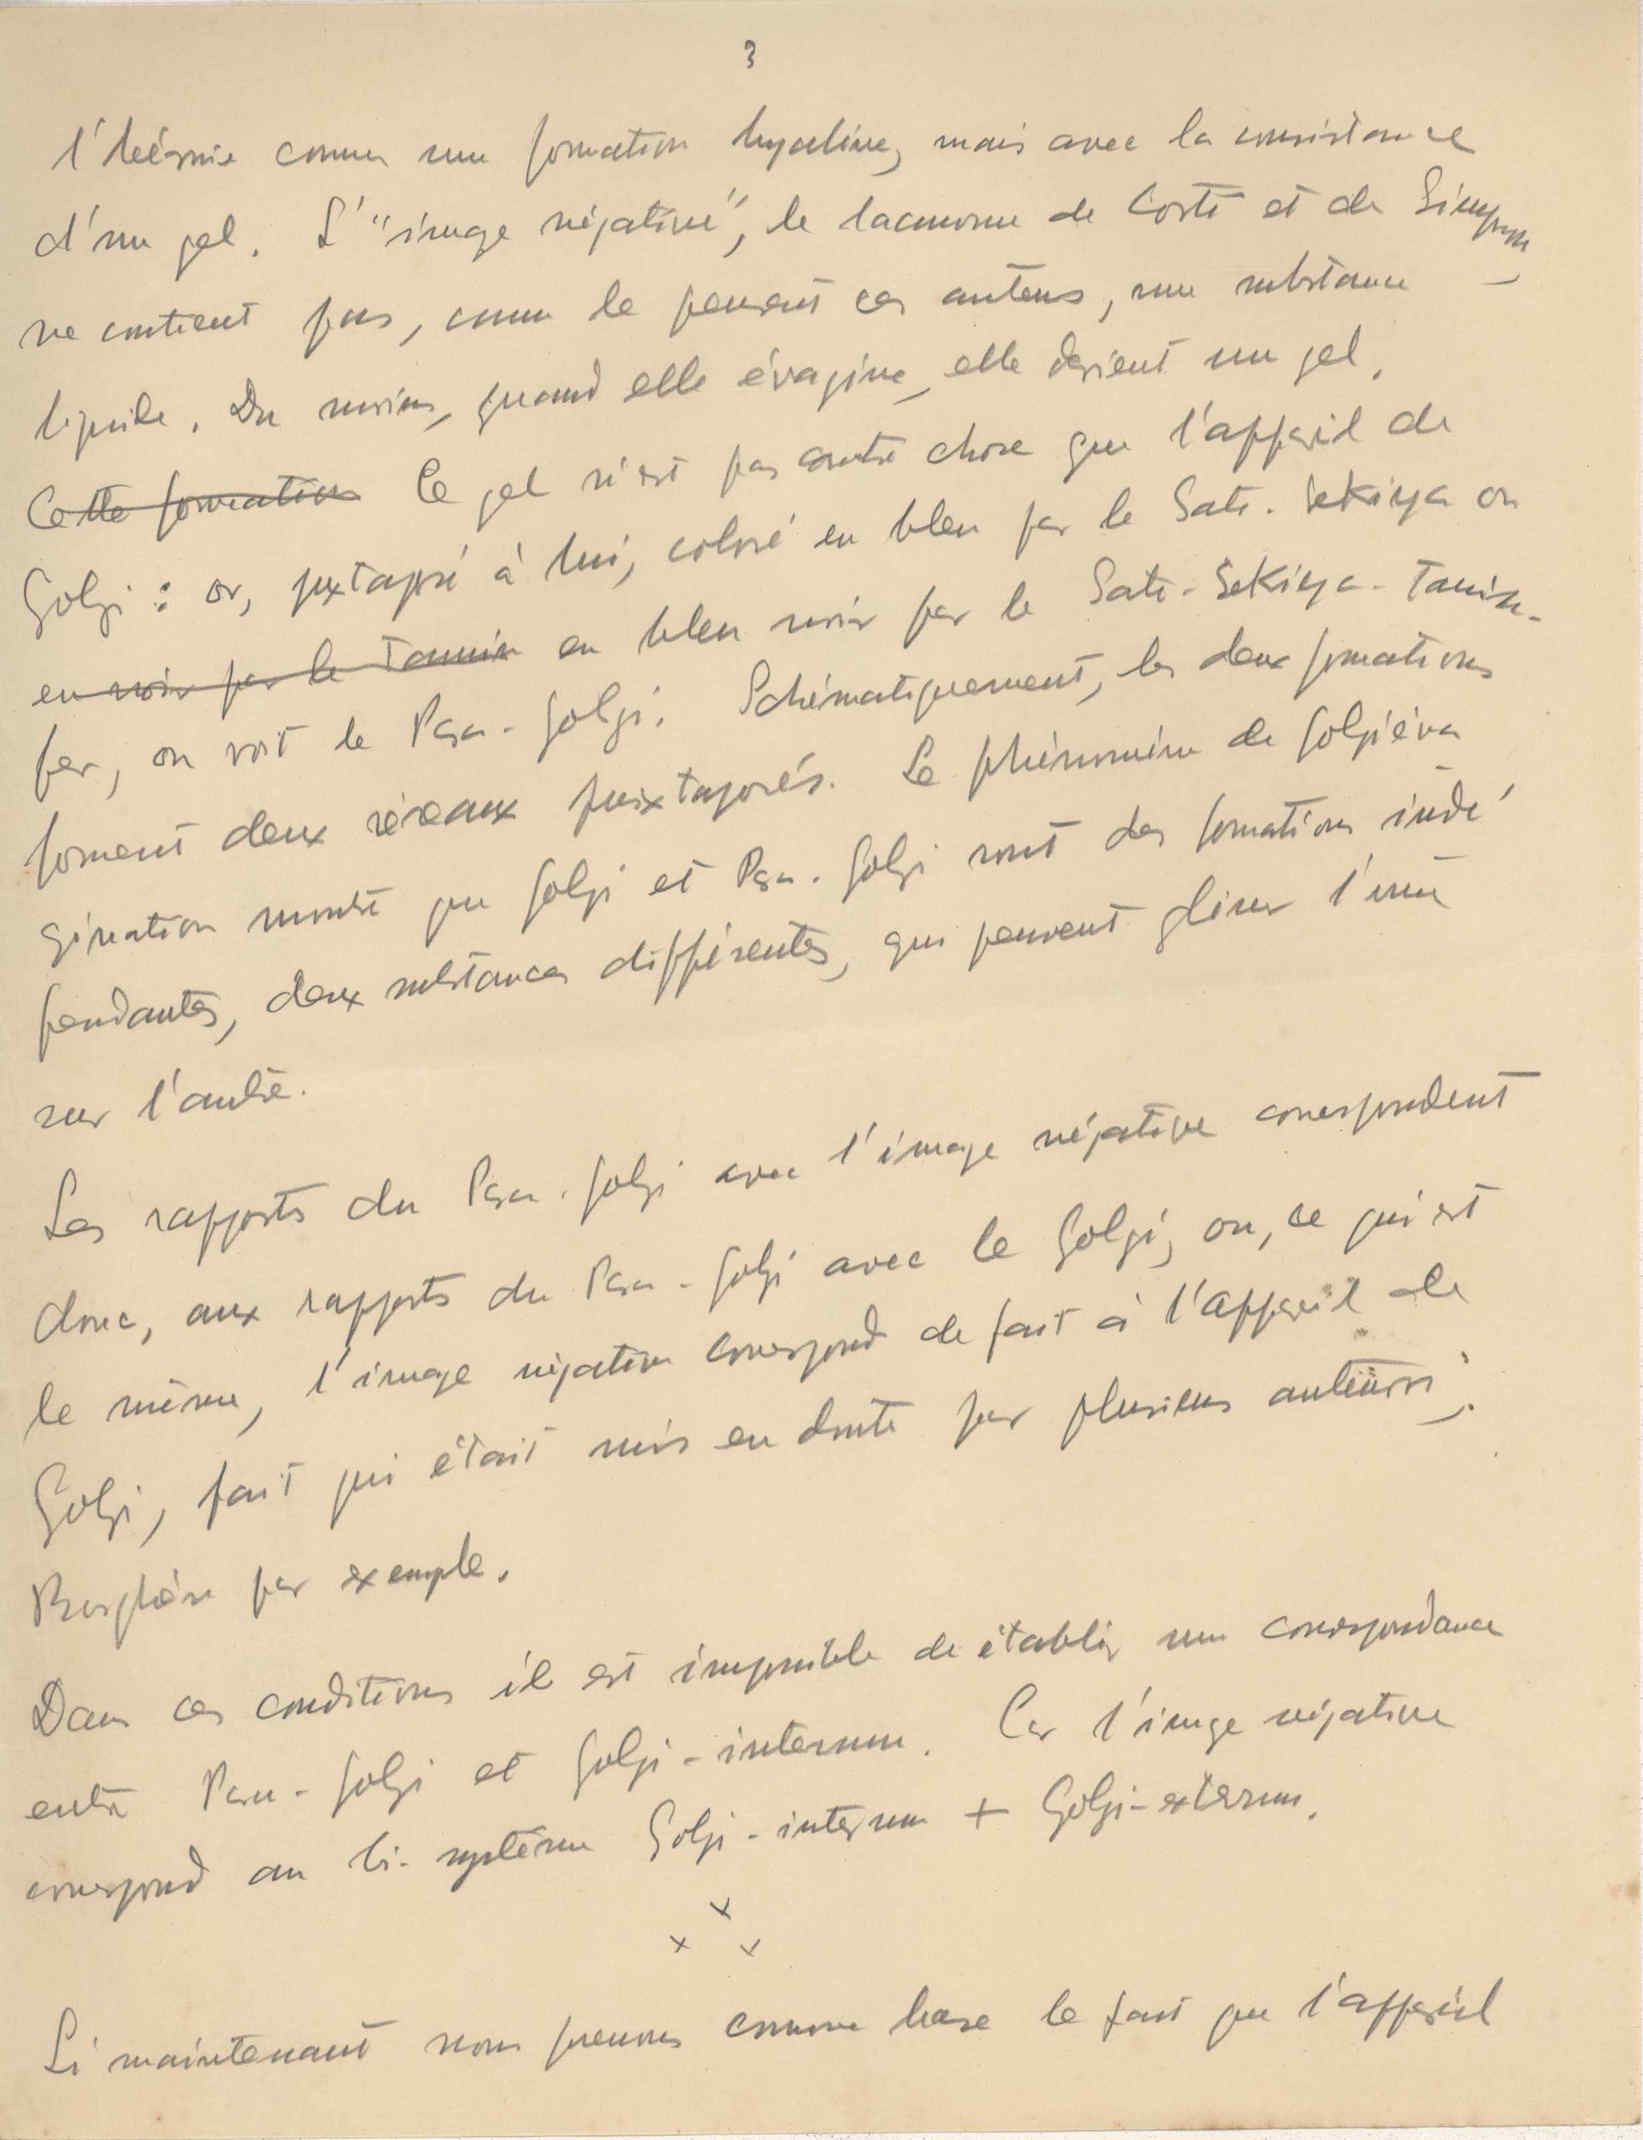 3
l'hérnie comme une formation hyaline, mais avec la consistance
d'un gel. L'"image négative", le lacunome de Corti et de Simpson
ne contient pas, comme le pensent ces auteurs, une substance
liquide. Du moins, quand elle évagine, elle devient un gel.
Cette formation Ce gel n'est pas autre chose que l'appareil de
Golgi : or, juxtaposé à lui, coloré en bleu par le Sato-Sekiya ou
en noir par le Tannin en bleu noir par le Sato-Sekiya-Tannin-
fer, on voit le Para-Golgi. Schématiquement, les deux formations
forment deux réseaux juxtaposés. Le phénomène de Golgiéva
gination montre que Golgi et Para-Golgi sont des formations indé
pendantes, deux substances différentes, qui peuvent glisser l'une
sur l'autre.
Les rapports du Para-Golgi avec l'image négative correspondent
donc, aux rapports du Para-Golgi avec le Golgi, ou, ce qui est
le même, l'image négative correspond de fait à l'appareil de
Golgi, fait qui était mis en doute par plusieurs auteurs;
par exemple.
Dans ces conditions il est impossible de établir une correspondance
entre Para-Golgi et Golgi-internum. Car l'image négative
correspond au bi-système Golgi-internum + Golgi-externum.
x
x x
Si maintenant nous prenons comme base le fait que l'appareil